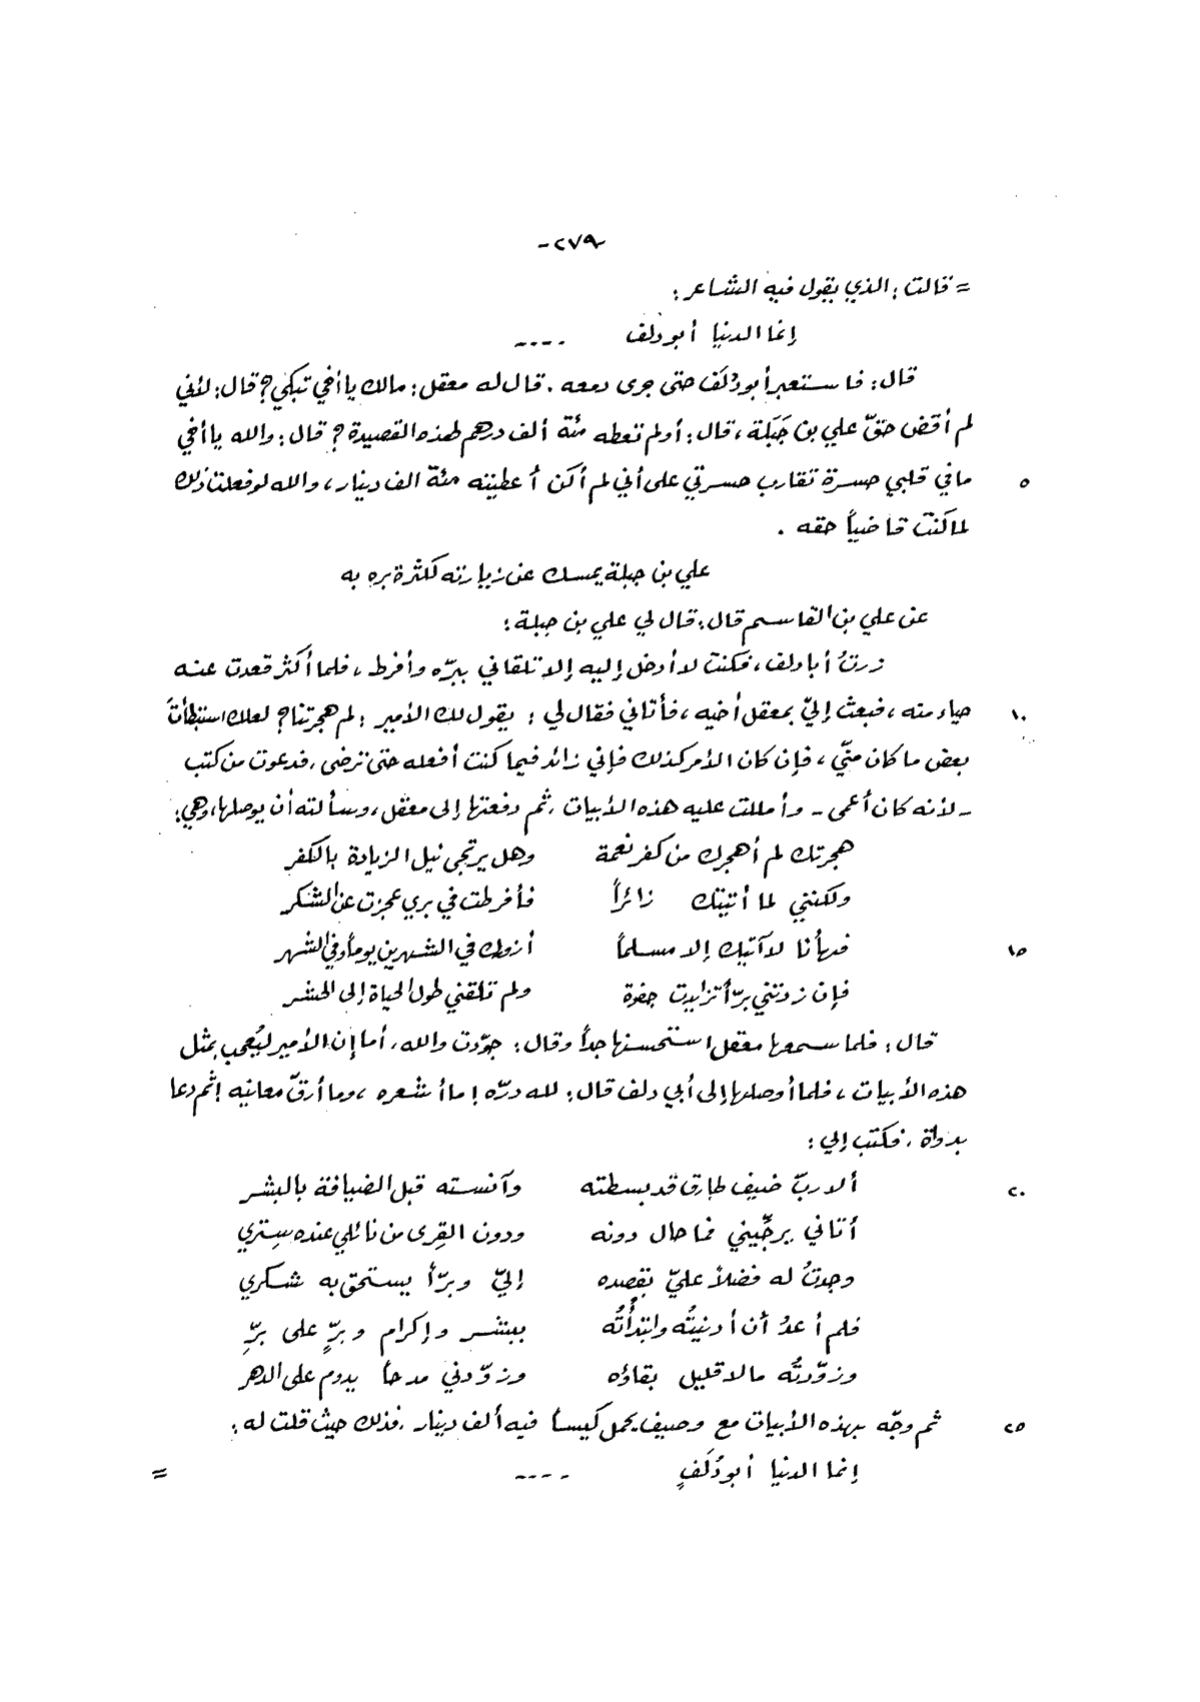 -٢٧٩-
= قالت : الذي يقول فيه الشاعر :
إنما الدنيا أبو دلف ----
قال : فاستعبر أبو دُلَف حتى جرى دمعه . قال له معقل : مالك يا أخي تبكي ؟ قال : لأني
لم أقض حقّ علي بن جَبَلة ، قال : أولم تعطه مئة ألف درهم لهذه القصيدة ؟ قال : والله يا أخي
٥ ما في قلبي حسرة تقارب حسرتي على أني لم أكن أعطيته مئة الف دينار ، والله لو فعلت ذلك
لما كنت قاضياً حقه .
علي بن جبلة يمسك عن زيارته لكثرة بره به
عن علي بن القاسم قال : قال لي علي بن جبلة :
زرتُ أبا دلف ، فكنت لا أدخل إليه إلا تلقاني ببرّه وأفرط ، فلما أكثر قعدت عنه
١٠ حياء منه ، فبعث إليّ بمعقل أخيه ، فأتاني فقال لي : يقول لك الأمير : لم هجرتنا ؟ لعلك استبطأت
بعض ما كان منّي ، فإن كان الأمر كذلك فإني زائد فيما كنت أفعله حتى ترضى ، فدعوت من كتب
- لأنه كان أعمى - وأمللت عليه هذه الأبيات ، ثم دفعتها إلى معقل ، وسألته أن يوصلها ، وهي :
هجرتك لم أهجرك من كفر نعمة وهل يرتجى نيل الزيادة بالكفر
ولكنني لما أتيتك زائراً فأفرطت في بري عجزت عن الشكر
١٥ فها أنا لا آتيك إلا مسلماً أزورك في الشهرين يوماً وفي الشهر
فإن زدتني برّاً تزايدت جفوة ولم تلقني طول الحياة إلى الحشر
قال : فلما سمعها معقل استحسنها جداً وقال : جوّدت والله ، أما إن الأمير ليُعجب بمثل
هذه الأبيات ، فلما أوصلها إلى أبي دلف قال : لله درّه ! ما أشعره ، وما أرقّ معانيه ! ثم دعا
بدواة ، فكتب إلي :
٢٠ ألا ربّ ضيف طارق قد بسطته وآنسته قبل الضيافة بالبشر
أتاني يرجِّيني فما حال دونه ودون القِرى من نائلي عنده سِتري
وجدتُ له فضلاً عليّ بقصده إليّ وبرّاً يستحق به شكري
فلم أعدُ أن أدنيتُه وابتدأتُه ببشر وإكرام وبرٍّ على برِّ
وزوّدتُه مالاً قليل بقاؤه وزوّدني مدحاً يدوم على الدهر
٢٥ ثم وجّه بهذه الأبيات مع وصيف يحمل كيساً فيه ألف دينار ، فذلك حيث قلت له :
إنما الدنيا أبو دُلَفٍ ----
=